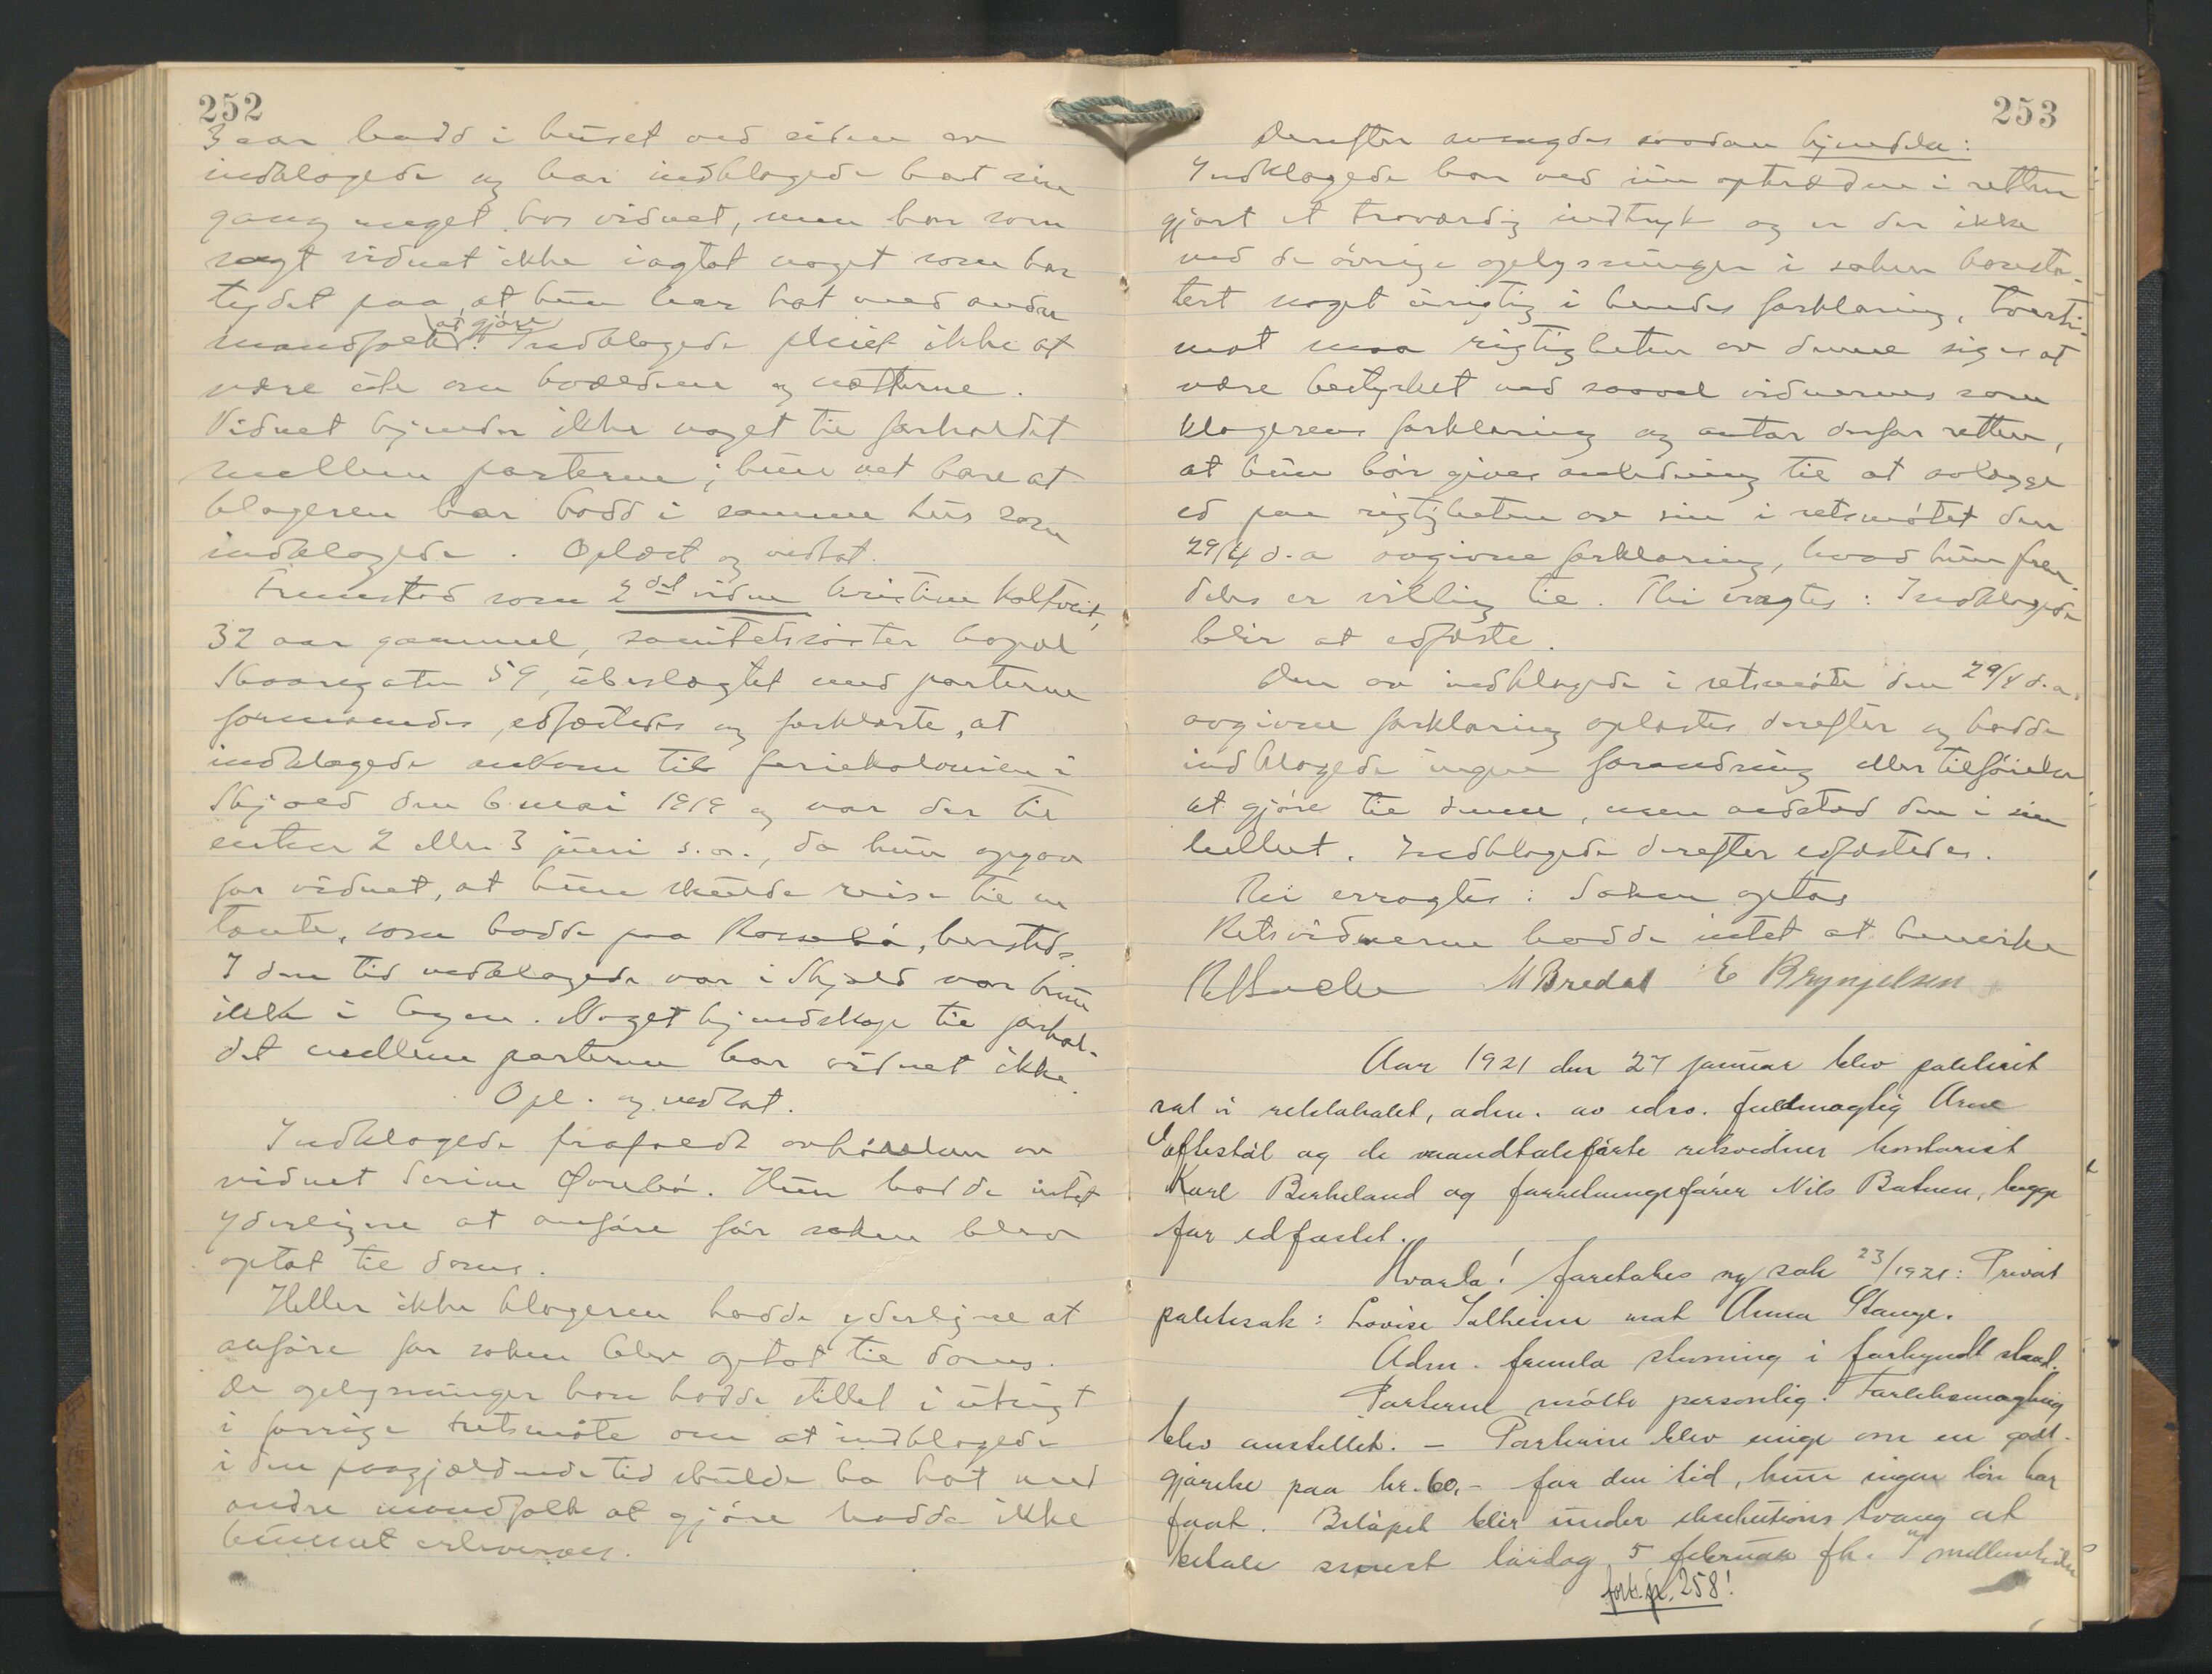 252
3 aar bodd i huset ved siden av
indklagede og har indklagede hat sin
gang meget hos vidnet, men har som
sagt vidnet ikke iagtat noget som har
tydet paa, at hun har hat med andre
mandfolk at gjøre. Indklagede pleiet ikke at
være ute om kvældene og nætterne.
Vidnet kjender ikke noget til forholdet
mellem parterne; hun vet bare at
klageren har bodd i samme hus som
indklagede. Oplæst og vedtat.
Fremstod som 2det vidne Kristine Kaltveit,
32 aar gammel, sanitetssöster bopæl
Skaaregaten 59, ubeslægtet med parterne
formanedes, edfæstedes og forklarte, at
indklagede ankom til feriekolonien i
Skjold den 6 mai 1919 og var der til
enten 2 eller 3 juni s.a., da hun opgav
for vidnet, at hun skulde reise til en
tante, som bodde paa Rossebö, hersteds.
I den tid indklagede var i Skjold var hun
ikke i byen. Noget kjendskap til forhol-
det mellem parterne har vidnet ikke.
Opl. og vedtat.
Indklagede frafaldt avhörelsen av
vidnet SerineØrebö. Hun hadde intet
yderligere at anföre för saken blev
optat til doms.
Heller ikke klageren hadde yderligere at
anföre før saken blev optat til doms.
De oplysninger han hadde stillet i utsigt
i forrige retsmöte om at indklagede
i den paagjældende tid skulde ha hat med
andre mandfolk at gjöre hadde ikke
kunnet erhverves.
253
Derefter avsagdes saadan kjendelse:
Indklagede har ved sin optræden i retten
gjort et troværdig indtryk og er der ikke
ved de övrige oplysninger i saken konsta-
tert noget urigtig i hendes forklaring, tverti-
mot maa rigtigheten av denne siges at
være bestyrket ved saavel vidnernes som
klagerens forklaring og antar derfor retten,
at hun bör gives anledning til at avlægge
ed paa rigtigheten av sin i retsmötet den
29/4 d.a avgivne forklaring, hvad hun frem-
deles er villig til. Thi eragtes: Indklagede
blir at edfæste.
Den av indklagede i retsmöte den 29/4 d.a.
avgivne forklaring oplæstes derefter og hadde
indklagede ingen forandring eller tilföielse
at gjöre til denne, men vedstod den i sin
helhet. Indklagede derefter edfæstedes.
Thi eragtes: Saken optas
Retsvidnerne hadde intet at bemerke
M Bredal E Brynjelsen
Aar 1921 den 27 januar blev politiret
sat i retslokalet, adm. av edsv. fuldmægtig Arne
Eftestöl og de mandtalsförte retsvidner kontorist
Karl Birkeland og forretningsförer Nils Batnen, begge
för edfæstet.
Hvorda! foretokes ny sak 23/1921: Privat
politisak: Lovise Solheim mot Anna Stange.
Adm. fremla stevning i forkyndt stand.
Parterne mötte personlig. Forliksmægling
blev anstillet. – Parterne blev enige om en godt-
gjörelse paa kr. 60,- for den tid, hun ingen lön har
faat. Belöpet blir under eksekutions tvang at
betale senest lördag 5 februar fk. I mellemtiden
forts. pag. 258!